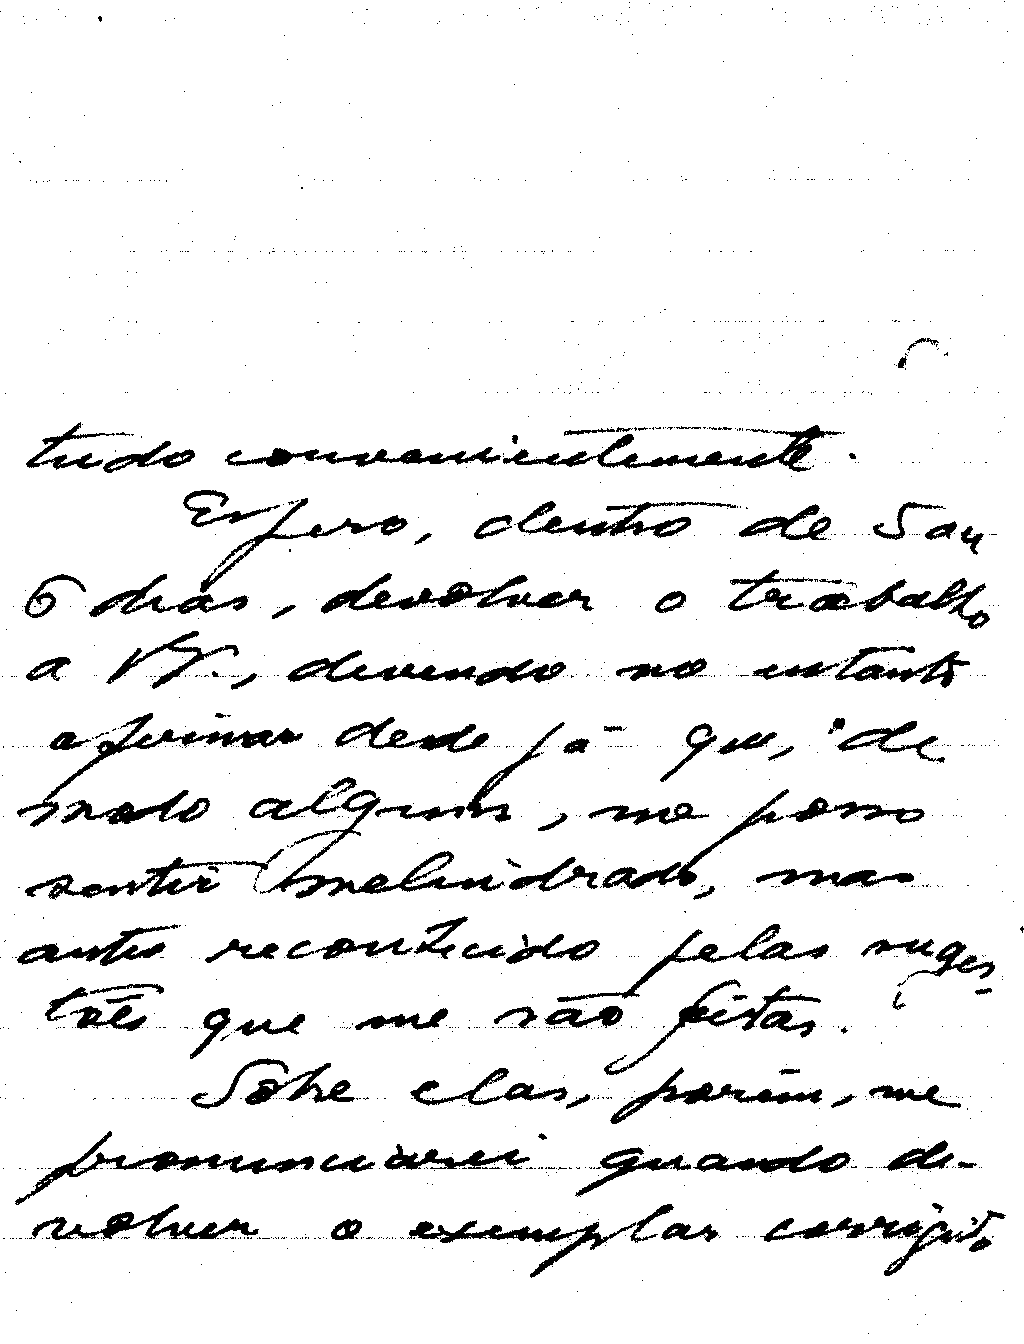 tudo convenientemente.
Espero, dentro de 5 ou
6 dias, devolver o trabalho
a VV., devendo no entanto
afirmar desde já que, de
modo algum, me posso
sentir melindrado, mas
antes reconhecido pelas suges-
tões que me são feitas.
Sôbre elas, porém, me
pronunciarei quando de-
volver o exemplar corrigido